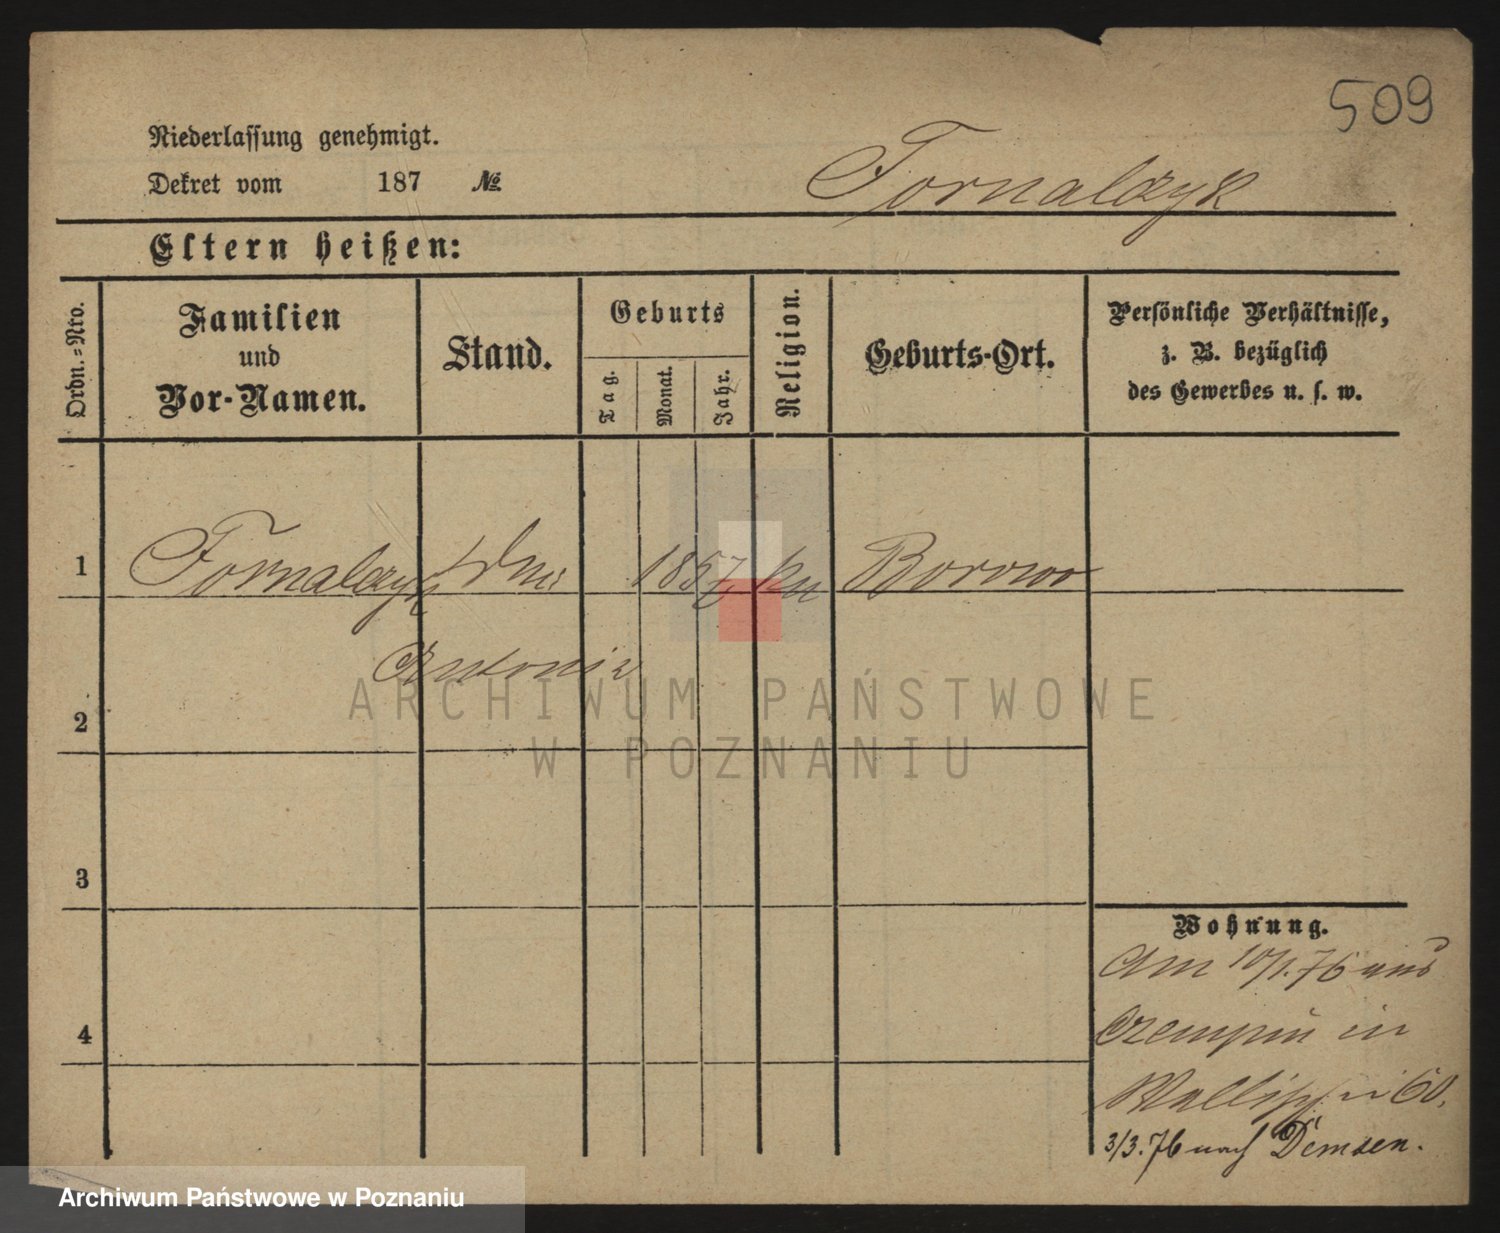 509
Niederlassung genehmigt.
Dekret vom 187 №
Fornalczyk
Eltern heißen:
Ordn.=Nro.
Familien
und
Vor-Namen.
Stand.
Geburts
Tag.
Monat.
Jahr.
Religion.
Geburts-Ort.
Persönliche Verhältnisse,
z. B. bezüglich
des Gewerbes u. s. w.
1 Fornalczyk 1857 Borowo
Antonie
2
3
4
Wohnung.
Am 10/1.76 aus
Czempin in
60.
3/3.76 nach Demsen.
ARCHIWUM PAŃSTWOWE
W POZNANIU
Archiwum Państwowe w Poznaniu